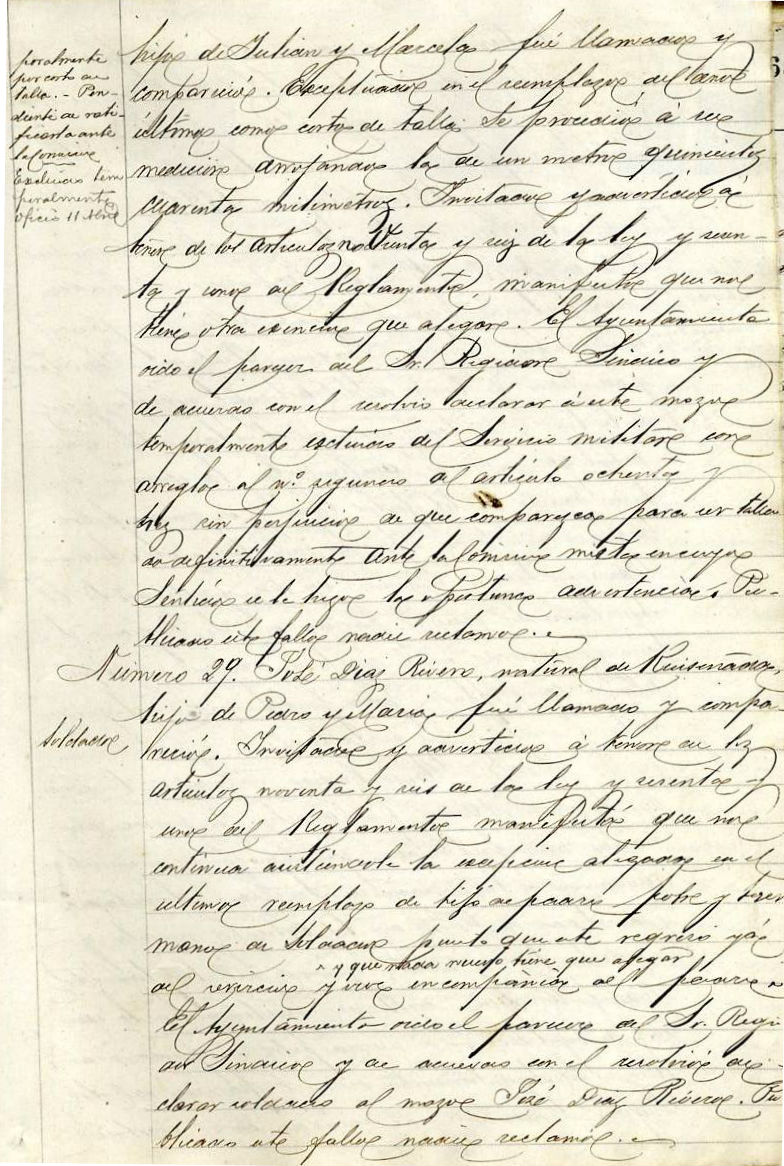 poralmente
por corto de
talla. - Pen-
diente de rati-
ficarla ante
la Comision
Excluido tem
poralmente
oficio 11 Abril
hijo de Julian y Marcela fué llamado y
compareció. Exceptuado en el reemplazo del año
último como corto de talla. Se procedió á su
medicion arrojando la de un metro quinientos
cuarenta milimetros. Invitado y advertido á
tenor de los articulos noventa y seis de la ley y sesen-
ta y uno del Reglamento, manifestó que no
tiene otra exencion que alegar. El Ayuntamiento
oido el parecer del Sr. Regidor Sindico y
de acuerdo con el resolvió declarar á este mozo
temporalmente escluido del Servicio militar con
arreglo al n.º segundo del artículo ochenta y
tres sin perjuicio de que comparezca para ser talla
do definitivamente ante la Comision mista en cuyo
Sentido se le hizo la oportuna advertencia. Pu-
blicado este fallo nadie reclamó.
Número 29. José Diaz Rivero, natural de Ruiseñada,
hijo de Pedro y Maria fué llamado y compa-
Soldado
reció. Invitado y advertido á tenor de los
articulos noventa y seis de la ley y sesenta y
uno del Reglamento manifestó que no
continua asistiendole la excepcion alegada en el
ultimo reemplazo de hijo de padre pobre y her
mano de Soldado puesto que este regresó yá
^ y que nada nuevo tiene que alegar
del servicio y vive en compañia del padre ^
El Ayuntamiento oido el parecer del Sr. Regi
dor Sindico y de acuerdo con el resolvió de-
clarar soldado al mozo José Diaz Rivero. Pu
blicado este fallo nadie reclamó.
6